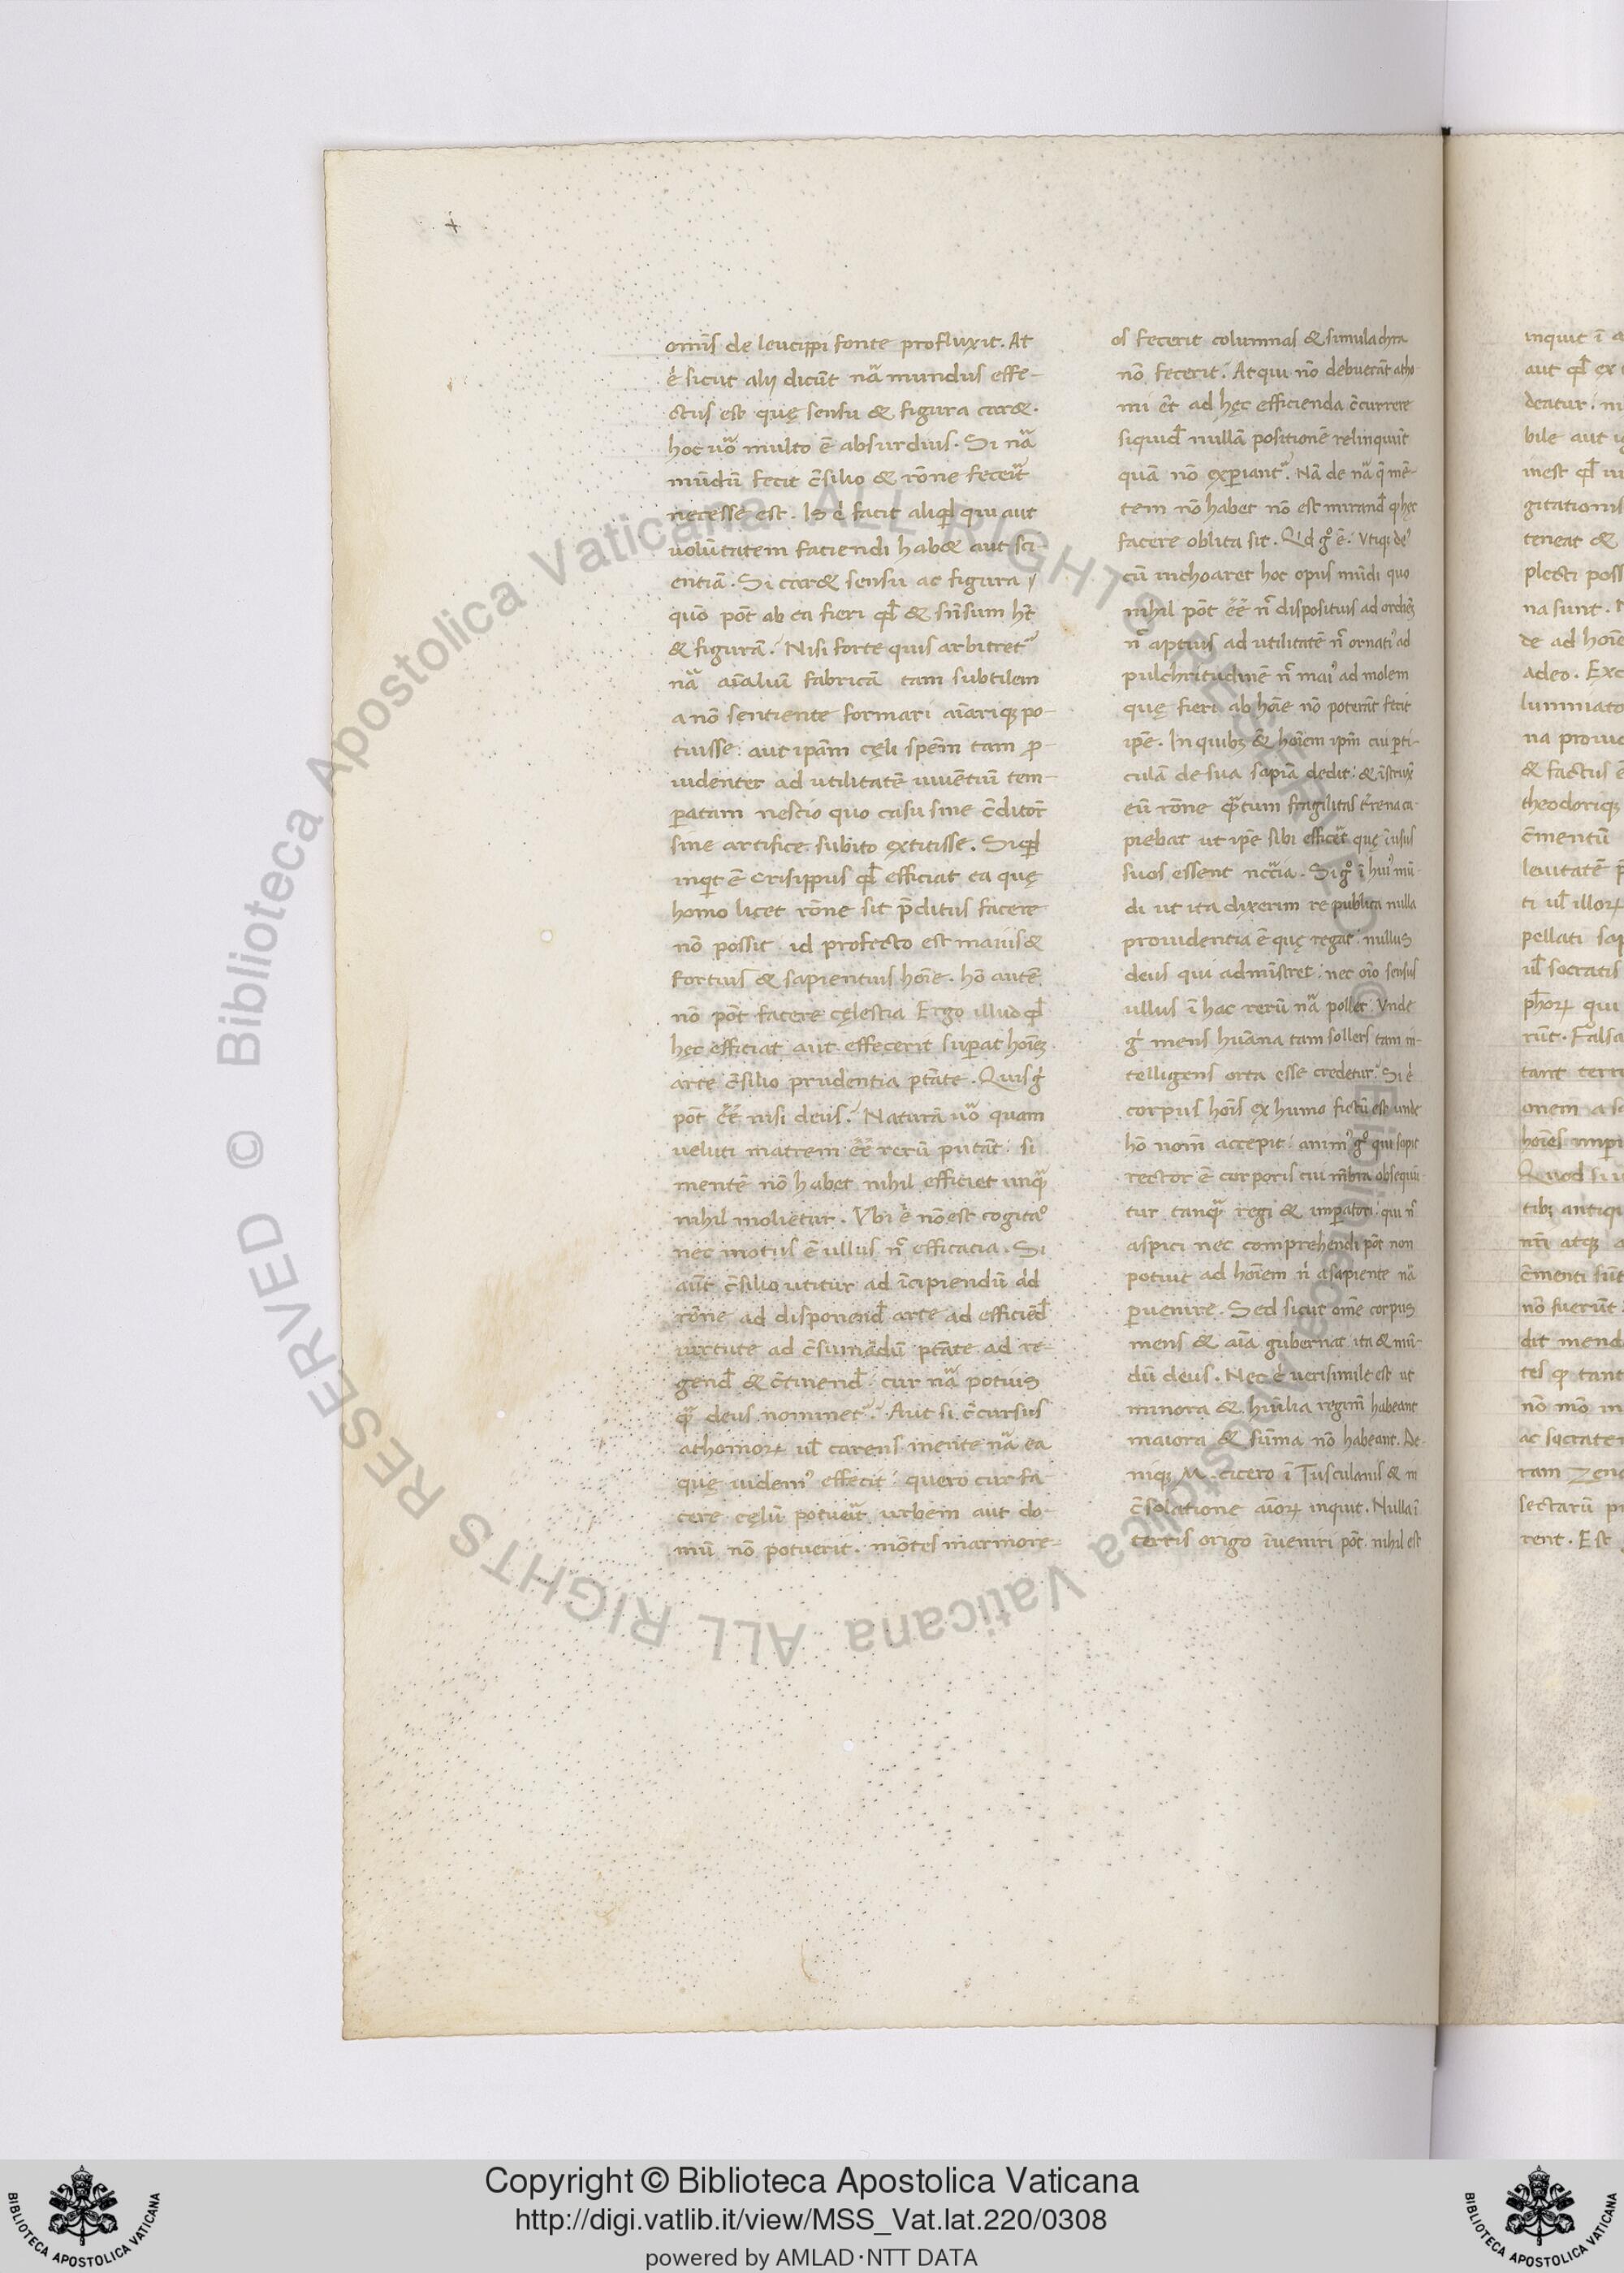 omīs de leucippi fonte profluxit. At
ē sicut alij dicūt nā mundus effe-
ctus est quę sensu & figura caret.
hoc uō multo ē absurdius. Si nā
mūdū fecit c̄silio & rōne fecerit
necesse est. Is .n. facit aliqd qui aut
uolūtatem faciendi habet aut sci-
entiā. Si caret sensu ac figura
quō pōt ab ea fieri qd & sensum ht
& figurā? Nisi forte quis arbitret
nā aīaliū fabricā tam subtilem
a nō sentiente formari aīariq; po-
tuisse: aut ipām cęli spēm tam p-
uidenter ad utilitatē uiuentiū tem-
patam nescio quo casu sine c̄ditore
sine artifice subito extitisse. Siqd
inqt ē Crisippus qd efficiat ea quę
homo licet rōne sit pditus facere
nō possit id profecto est maius &
fortius & sapientius hoīe. hō autē
nō pōt facere cęlestia Ergo illud qd
hęc efficiat aut effecerit supat hoīez
arte c̄silio prudentia ptāte. Quis g
pōt eē nisi deus? Naturā uō quam
ueluti matrem eē rerū putāt si
mentē nō habet nihil efficiet unq
nihil molietur. Vbi .n. nō est cogitao
nec motus ē ullus n̄ efficacia. Si
aūt c̄silio utitur ad īcipiendū
rōne ad disponend arte ad efficiēd
uirtute ad c̄sumādū ptāte ad re-
gend & c̄tinend cur nā potius
q deus nominet? Aut si c̄cursus
athomor ul carens mente nā ea
quę uidem effecit: quero cur fa-
cere cęlū potuerit urbem aut do-
mū nō potuerit. mōtes marmore-
os fecerit columnas & simulachra
nō fecerit? Atqui nō debuerāt atho
mi ēt ad hęc efficienda c̄currere
siquid nullā positionē relinquūt
quā nō expiant? Nā de nā q mē-
tem nō habet nō est mirand q hęc
facere oblita sit. Qd g ē? Vtiq; de
cū inchoaret hoc opus mūdi quo
nihil pōt eē n̄ dispositius ad ordinē
n̄ aptius ad utilitatē n̄ ornati ad
pulchritudinē n̄ mai ad molem
quę fieri ab hoīe nō poterāt fecit
ipē. In quibz & hoīem ipm cui pti-
culā de sua sapīa dedit: & īstruxit
eū rōne qtum fragilitas trena ca-
piebat ut ipē sibi efficeret quę ī usus
suos essent nccīa. Si g ī hui mū-
di ut ita dixerim re publica nulla
prouidentia ē quę regat nullus
deus qui administret: nec oīo sensus
ullus ī hac rerū nā pollet. Vnde
g mens huāna tam sollers tam in-
telligens orta esse credetur? Si .n.
corpus hoīs ex humo fictū est unde
hō nomē accepit: anim g qui sapit
rector ē corporis cui mēbra obsequū-
tur tanq regi & impatori qui n
aspici nec comprehendi pōt non
potuit ad hoīem n a sapiente nā
puenire. Sed sicut omē corpus
mens & aīa gubernat ita & mū-
dū deus. Nec .n. uerisimile est ut
minora & huīlia regimē habeant
maiora & sūma nō habeant. De-
niq; M. cicero ī Tusculanis & in
c̄solatione aīor inquit. Nulla ī
terris origo īueniri pōt nihil est
Copyright © Biblioteca Apostolica Vaticana
http://digi.vatlib.it/view/MSS_Vat.lat.220/0308
powered by AMLAD·NTT DATA